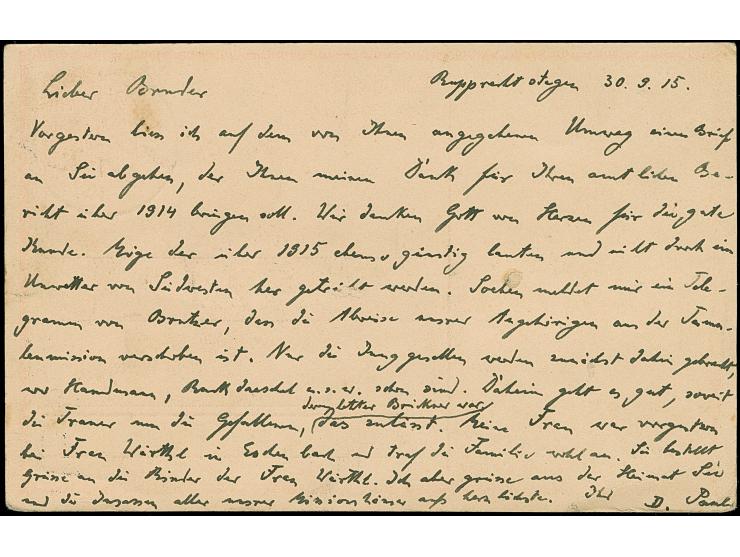 Lieber Bruder Rupprechtstegen 30. 9. 15.
Vorgestern liess ich auf dem von Ihnen angegebenen Umweg einen Brief
an Sie abgehen, der Ihnen meinen Dank für Ihren amtlichen Be-
richt über 1914 bringen soll. Wir danken Gott von Herzen für die gute
Kunde. Möge der über 1915 ebenso günstig lauten und nicht durch ein
Unwetter von Südwesten her getrübt werden. Soeben meldet mir ein Tele-
gramm von Brutzer, dass die Abreise unsrer Angehörigen aus der Tamu-
lenmission verschoben ist. Nur die Junggesellen werden zunächst dahin gebracht,
wo Handmann, Bachdaeschel u.s.w. schon sind. Daheim geht es gut, soweit
deren letzter Brückner war,
die Trauer um die Gefallenen, das zulässt. Meine Frau war vorgestern
bei Frau Wärthl in Eschenbach und traf die Familie wohl an. Sie bestellt
Grüsse an die Kinder der Frau Wärthl. Ich aber grüsse aus der Heimat Sie
und die Insassen aller unsrer Missionshäuser aufs herzlichste. Ihr D. Paul